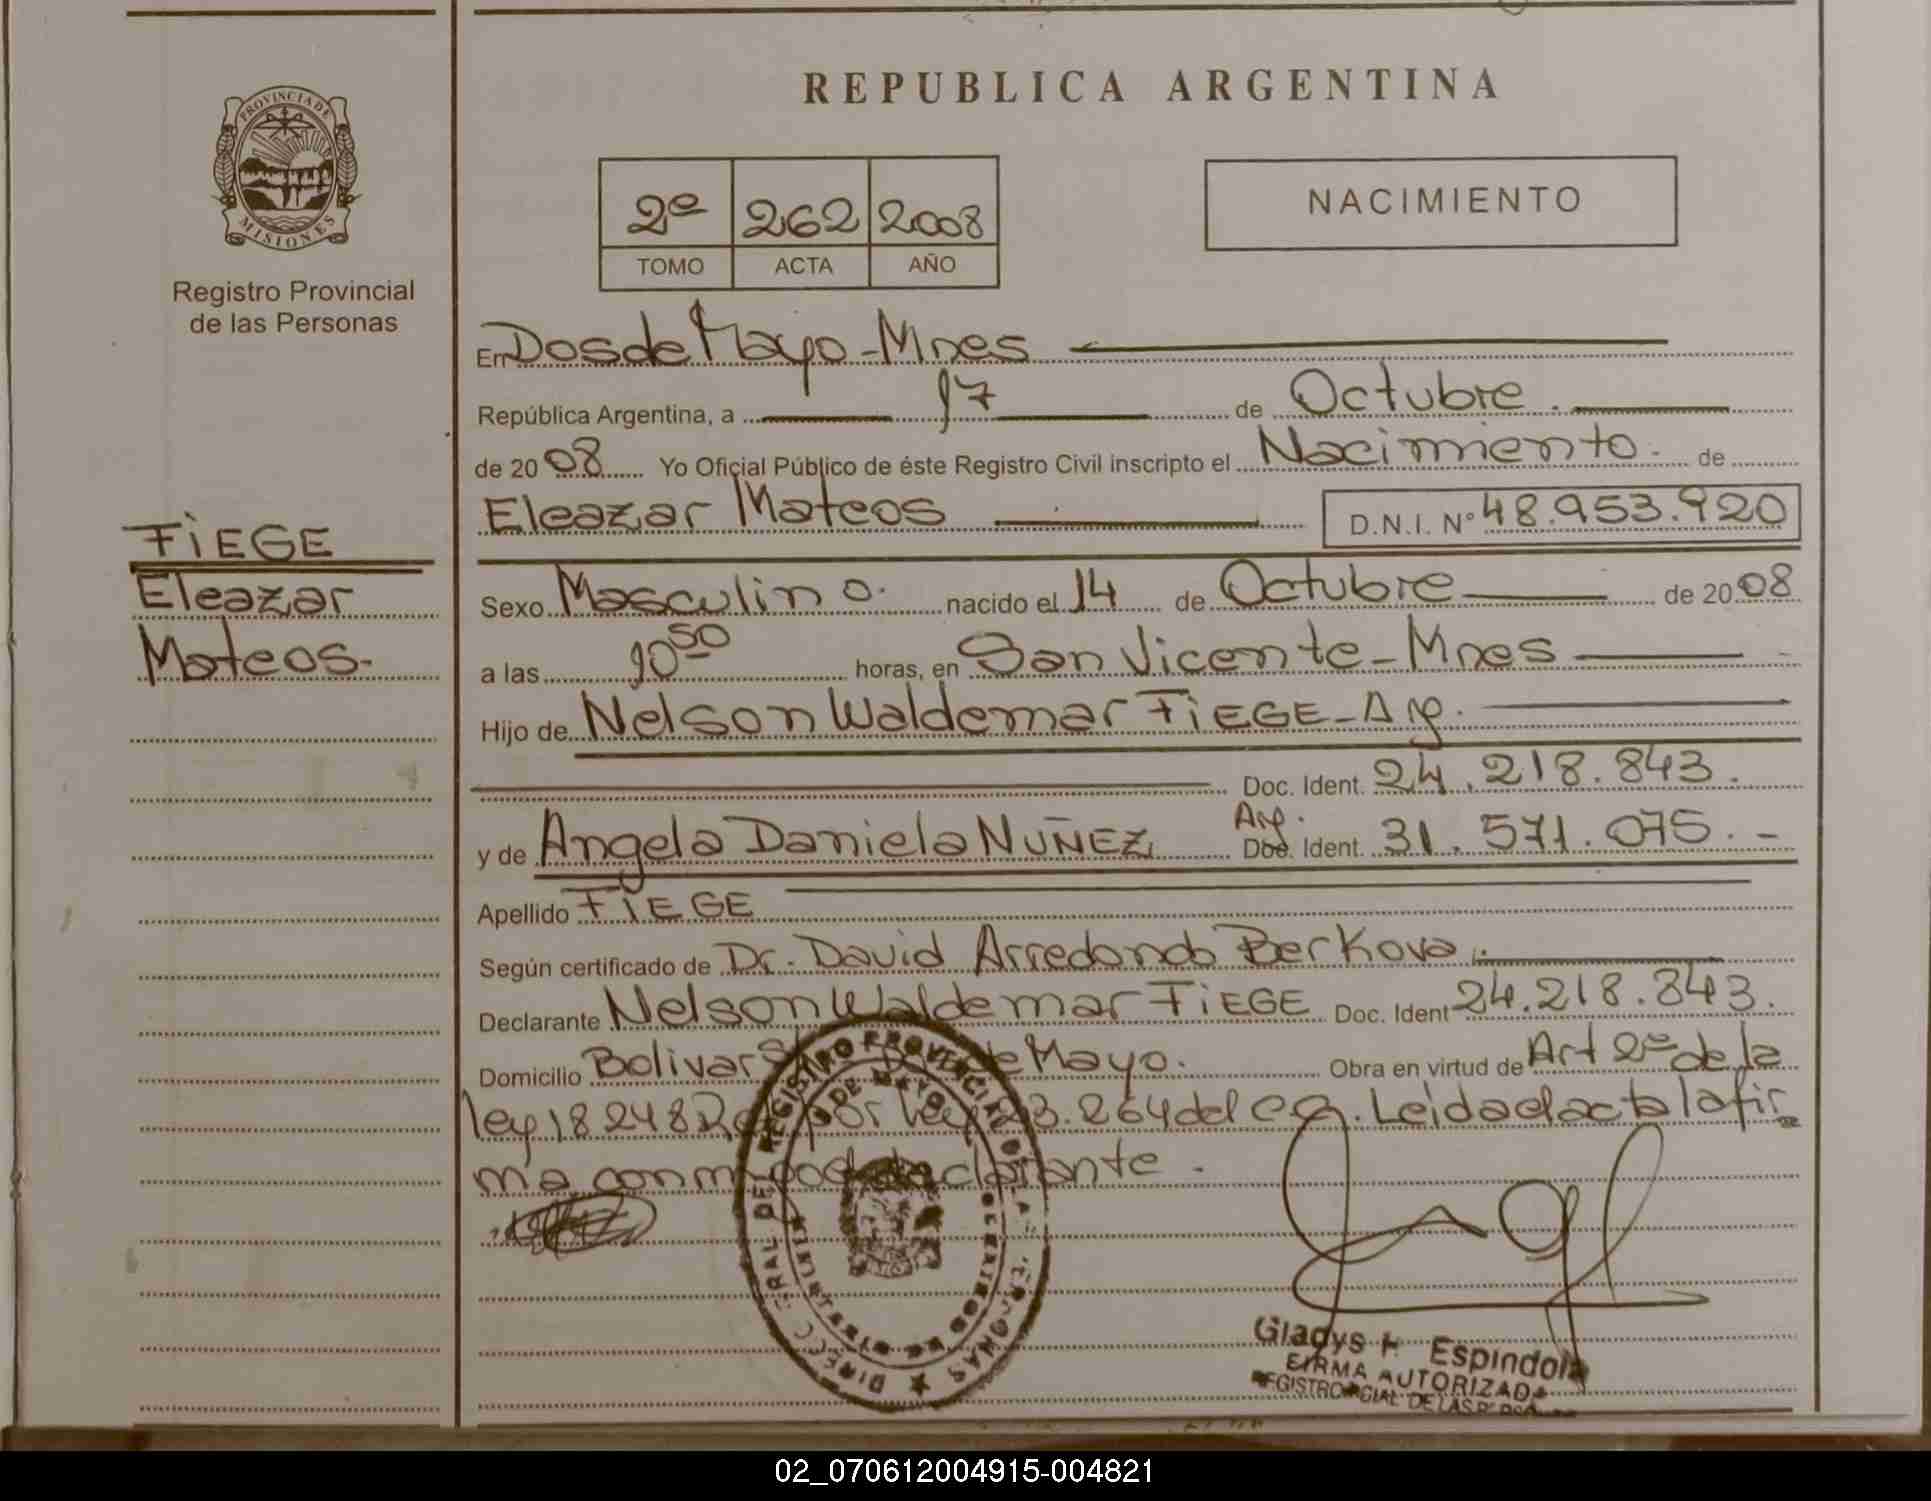 REPUBLICA ARGENTINA
PROVINCIA DE
MISIONES
Registro Provincial
de las Personas
2º 262 2008
TOMO ACTA AÑO
NACIMIENTO
En Dos de Mayo - Mnes
República Argentina, a 17 de Octubre.
de 2008 Yo Oficial Público de éste Registro Civil inscripto el Nacimiento. de
Eleazar Mateos D.N.I. Nº 48.953.920
FIEGE
Eleazar
Mateos.-
Sexo Masculino. nacido el 14 de Octubre de 2008
a las 10 50 horas, en San Vicente - Mnes
Hijo de Nelson Waldemar FIEGE - Arg.
Doc. Ident. 24.218.843.
y de Angela Daniela NUÑEZ Arg. Doc. Ident. 31.571.075.-
Apellido FIEGE
Según certificado de Dr. David Arredondo Berkova.
Declarante Nelson Waldemar FIEGE Doc. Ident 24.218.843.
Domicilio Bolivar de Mayo. Obra en virtud de Art 2º de la
ley 18248 por ley 23.264 del c.c. Leida el acta la fir
ma conmigo el declarante.
Gladys Espindola
FIRMA AUTORIZADA
REGISTRO DE LAS
02_070612004915-004821